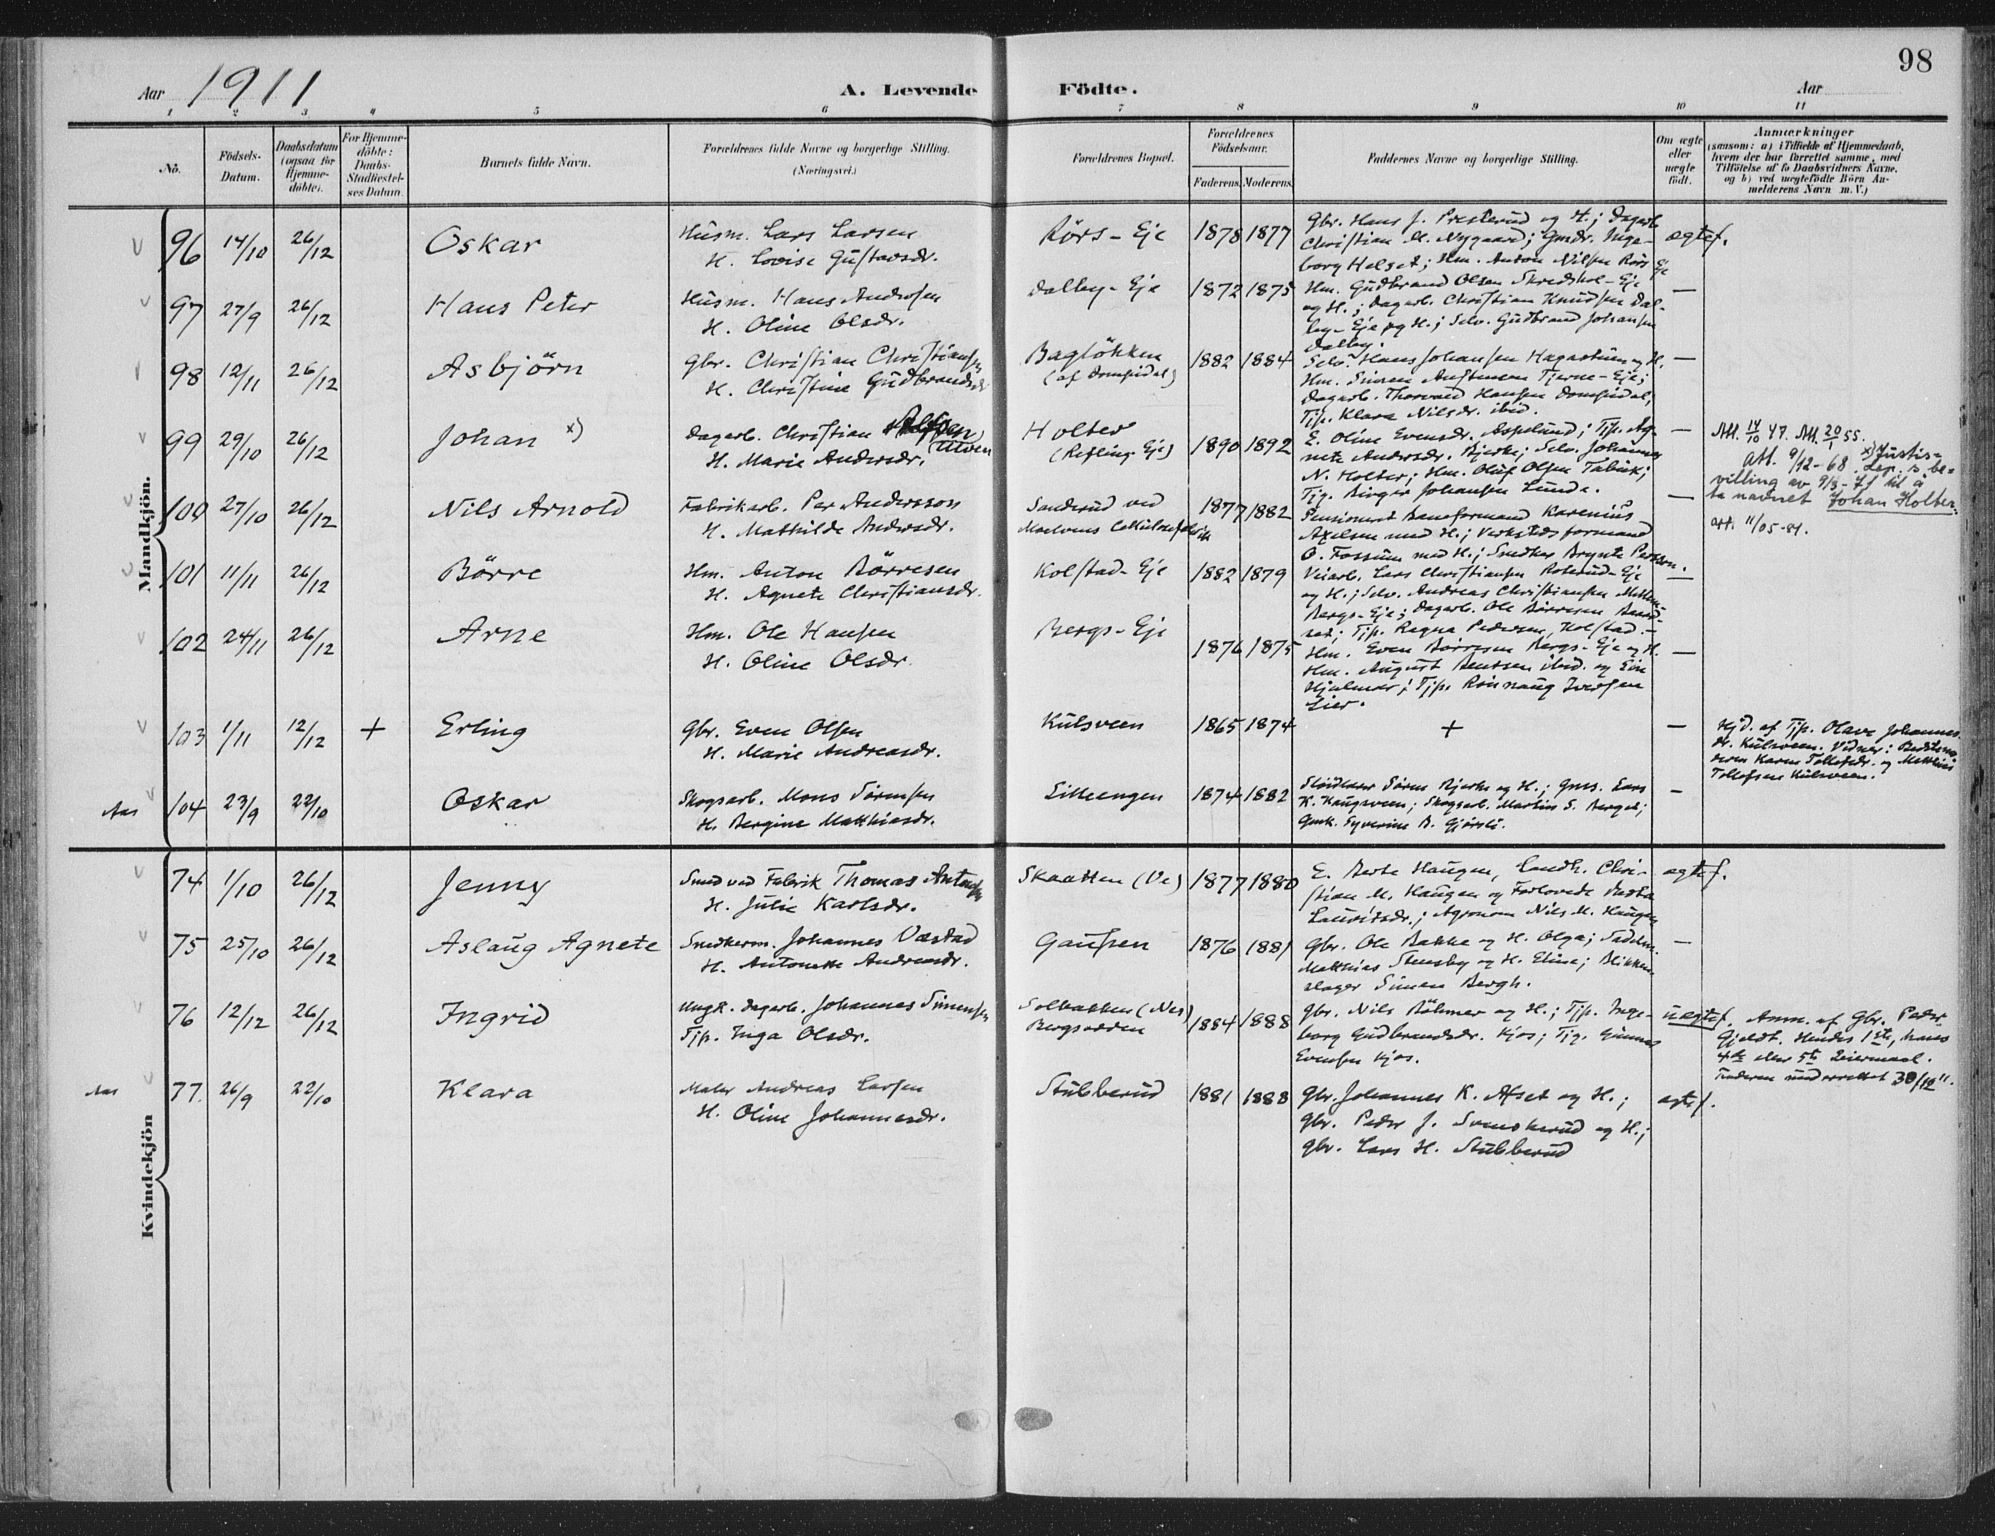 98
Aar 1911
A. Levende Födte.
Aar
1 2 3 4 5 6 7 8 9 10 11
No.
Födsels-Datum.
Daabsdatum (ogsaa for Hjemme-döbte).
For Hjemme-döbte: Daabs-Stadfæstel-ses Datum.
Barnets fulde Navn.
Forældrenes fulde Navne og borgerlige Stilling. (Næringsvei.)
Forældrenes Bopæl.
Forældrenes Födselsaar.
Faderens. Moderens.
Faddernes Navne og borgerlige Stilling.
Om ægte eller uægte födt.
Anmærkninger
(saasom: a) i Tilfælde af Hjemmedaab,
hvem der har forrettet samme, med
Tilföielse af to Daabsvidners Navne.
og b) ved uægtefödte Börn An-
melderens Navn m. V.)
Mandkjön.
96 14/10 26/12 Oskar
Husm. Lars Larsen
H. Lovise Gustavsdr.
Rörs-Eje 1878 1877
Gbr. Hans J. Presterud og H.; Dagarb.
Christian M. Nygaard; Gmdr. Inge-
borg Helset; Hm. Anton Nilsen Rörs Eje
ægtef.
97 27/9 26/12 Hans Peter
Husm. Hans Andersen
H. Oline Olsdr.
Dalby-Eje 1872 1875
Hm. Gudbrand Olsen Skredshol-Eje
og H.; Dagarb. Christian Knudsen Dal-
by-Eje og H.; Selv. Gudbrand Johansen
Dalby.
—
98 12/11 26/12 Asbjörn
Gbr. Christian Christiansen
H. Christine Gudbrandsdr.
Baglökken 1882 1884
Selv. Hans Johansen Hagastuen og H.
Hm. Simen Austensen Tjerne-Eje;
Dagarb. Thorvald Hansen Domsidal;
Tjp. Klara Nilsdr. ibid.
—
99 29/10 26/12 Johan x)
Dagarb. Christian
H. Marie Andersdr.
Holter
(Refling Eje) 1890 1892
E. Oline Evensdr. Aspelund; Tjp. Ag-
nete Andersdr. Bjerke; Selv. Johannes
N. Holter; Hm. Oluf Olsen
Tjg. Birger Johansen Lunde.
—
Att. 14/10 47. Att. 20/1 55.
Att. 9/12-68. x) Justis-
dep.s be-
villing av 9/3-71 til å
ta navnet Johan Holter.
att. 11/05-81.
100 27/10 26/12 Nils Arnold
Fabrikarb. Per Andersson
H. Mathilde Andersdr.
Sanderud ved
1877 1882
Pensioneret Baneformand Karenius
Axelsen med H.; Verkstedsformand
O. Fossum med H.; Snedker Brynte Persson.
—
101 11/11 26/12 Börre
Hm. Anton Börresen
H. Agnete Christiansdr.
Kolstad-Eje 1882 1879
Veiarb. Lars Christiansen Roterud-Eje
og H.; Selv. Andreas Christiansen
Bergs-Eje; Dagarb. Ole Börresen
Tjp. Ragna Pedersen, Kolstad.
—
102 24/11 26/12 Arne
Hm. Ole Hansen
H. Oline Olsdr.
Bergs-Eje 1876 1875
Hm. Even Börresen Bergs-Eje og H.
Hm. August Bentsen ibid. og
Hjalmar; Tjp. Rönnaug Iversen
Lier.
—
103 1/11 12/12 + Erling
Gbr. Even Olsen
H. Marie Andreasdr.
Kulsveen 1865 1874
+
—
Hjd. af Tjp. Olava Johannes-
dr. Kulsveen. Vidner: Bedstemo-
deren Karen Tollefsdr. og Matthias
Tollefsen Kulsveen.
Aas 104 23/9 22/10 Oskar
Skogsarb. Mons Sörensen
H. Bergine Matthiasdr.
Lilleengen 1874 1882
Sören Bjerke og H.; Gms. Lars
K. Kaugsveen; Skogsarb. Martin S. Berget;
Gmk. Syverine B. Gjörsli.
—
Kvindekjön
74 1/10 26/12 Jenny
Smed ved Fabrik Thomas Antonsen
H. Julie Karlsdr.
Skaatten (Ve) 1877 1880
E. Berte Haugen, Landh. Chri-
stian M. Haugen og Forlovede
Lauritsdr.; Agronom Nils M. Haugen
ægtef.
75 25/10 26/12 Aslaug Agnete
Snedkerm. Johannes Væstad
H. Antonette Andreasdr.
Gaupen 1876 1881
Gbr. Ole Bakke og H. Olga; Sadelm.
Matthias Stensby og H. Elina; Blikken-
slager Simen Bergh.
—
76 12/12 26/12 Ingrid
Ungk. Dagarb. Johannes Simensen
Tjp. Inga Olsdr.
Solbakken (Nes)
1884 1888
Gbr. Nils Böhmer og H.; Tjp. Inge-
borg Gudbrandsdr. Kjos; Tjg. Gunnar
Evensen Kjos.
uægtef.
Anm. af Gbr. Peder
Gjeldt. Hendes 1ste, hans
4de eller 5te Leiermaal.
Faderen underrettet 30/12 11.
Aas 77. 26/9 22/10 Klara
Maler Andreas Larsen
H. Oline Johannesdr.
Stubberud 1881 1883
Gbr. Johannes K. Afset og H.;
Gbr. Peder J. Svenskerud og H.;
Gbr. Lars H. Stubberud
ægtef.